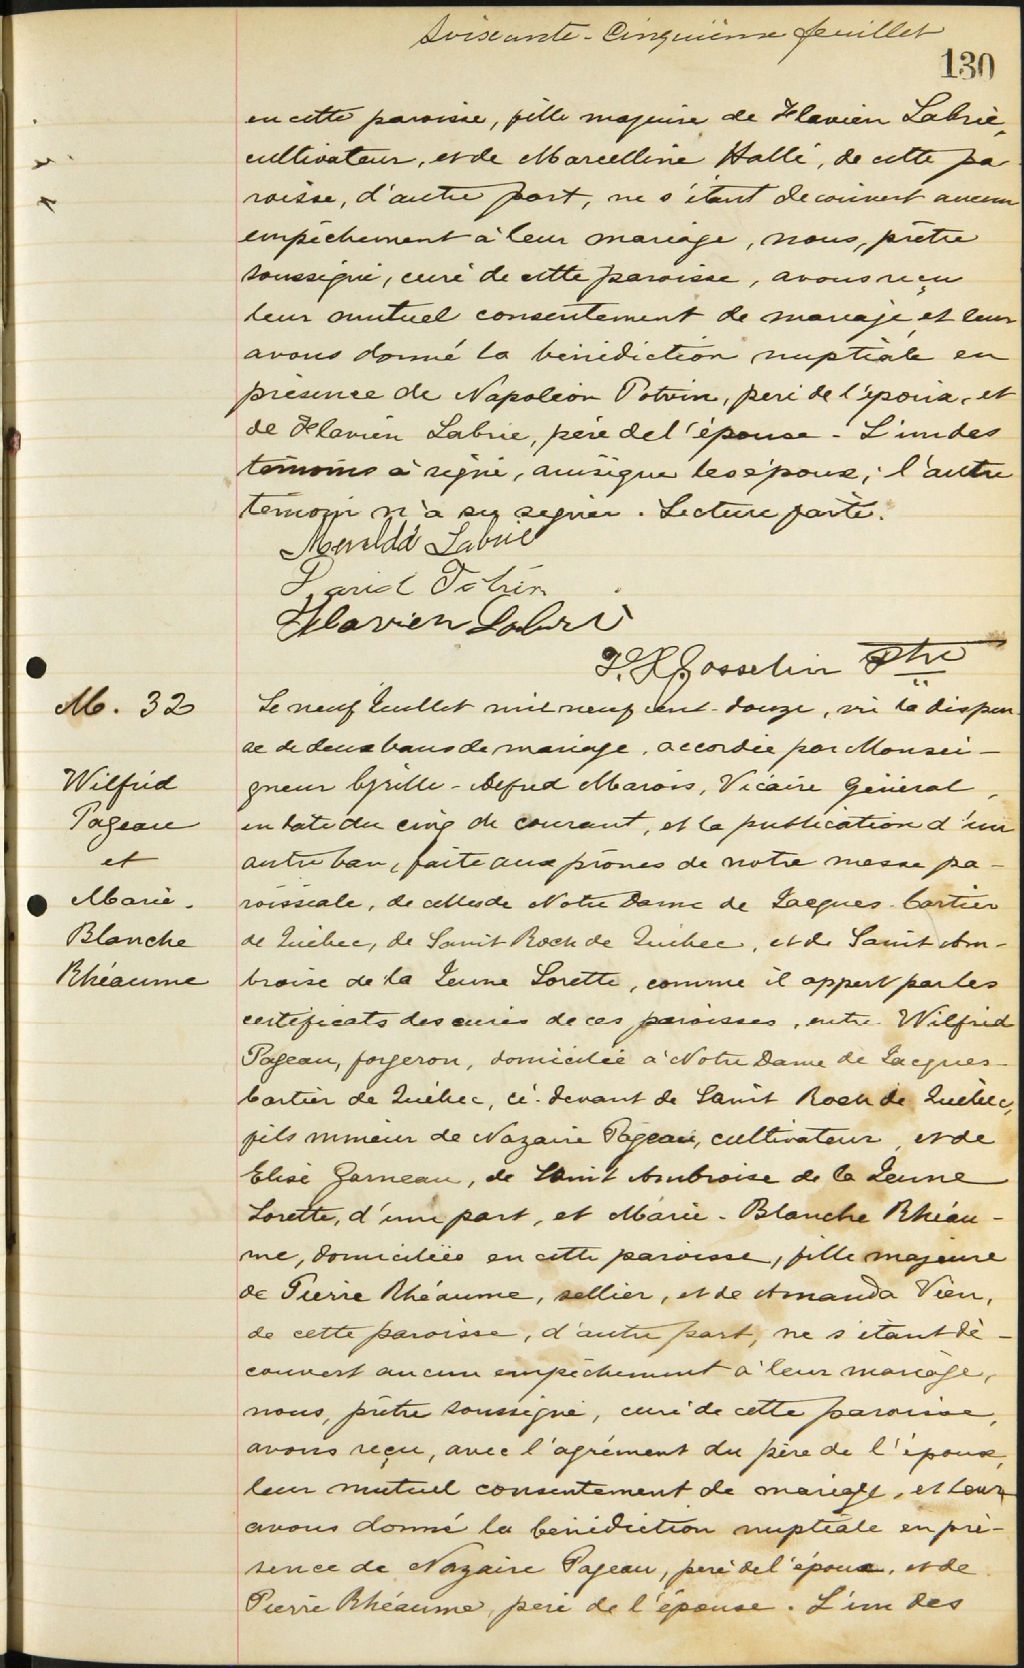 Soixante-Cinquième feuillet
130
en cette paroisse, fille majeure de Flavien Labrie,
cultivateur, et de Marcelline Hallé, de cette pa
roisse, d'autre part, ne s'étant découvert aucun
empêchement à leur mariage, nous, prêtre
soussigné, curé de cette paroisse, avons reçu
leur mutuel consentement de mariage et leur
avons donné la bénédiction nuptiale en
présence de Napoléon Potvin, père de l'époux, et
de Flavien Labrie, père de l'épouse - L'un des
témoins a signé, ainsi que les époux; l'autre
témoin n'a su signer. Lecture faite.
Labrie
David Potvin
Flavien Labrie
Gosselin Ptre
M. 32
Wilfrid
Pageau
et
Marie-
Blanche
Rhéaume
Le neuf Juillet mil neuf cent-douze, vu la dispen
se de deux bans de mariage, accordée par Monsei-
gneur Cyrille-Alfred Marois, Vicaire Général,
en date du cinq du courant, et la publication d'un
autre ban, faite aux prônes de notre messe pa-
roissiale, de celles de Notre Dame de Jacques-Cartier
de Québec, de Saint Roch de Québec, et de Saint Am-
broise de la Jeune Lorette, comme il appert par les
certificats des curés de ces paroisses, entre Wilfrid
Pageau, forgeron, domicilié à Notre Dame de Jacques-
Cartier de Québec, ci-devant de Saint Roch de Québec,
fils mineur de Nazaire Pageau, cultivateur, et de
Elise Garneau, de Saint Ambroise de la Jeune
Lorette, d'une part, et Marie-Blanche Rhéau-
me, domiciliée en cette paroisse, fille majeure
de Pierre Rhéaume, sellier, et de Amanda Vien,
de cette paroisse, d'autre part, ne s'étant dé-
couvert aucun empêchement à leur mariage,
nous, prêtre soussigné, curé de cette paroisse,
avons reçu, avec l'agrément du père de l'époux,
leur mutuel consentement de mariage, et leur
avons donné la bénédiction nuptiale en pré-
sence de Nazaire Pageau, père de l'époux, et de
Pierre Rhéaume, père de l'épouse. L'un des